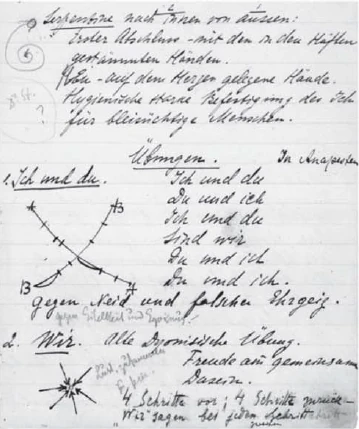 Serpentine nach innen von aussen:
Erster Abschluss - mit den in den Hüften
gestemmten Händen.
auf dem Herzen gelegene Hände.
Hygienische starke Befestigung des Ich
für bleichsüchtige Menschen.
5
?
Übungen. In Anapesten
1. Ich und du. Ich und du
Du und ich
Ich und du
Sind wir
Du und ich
Du und ich.
A B
B A
gegen Neid und falschen Ehrgeiz.
gegen und Egoismus!
2. Wir. Alte Dyonisische Übung.
Freude am gemeinsam
Dasein.
4 Schritte vor; 4 Schritte zurück -
"Wir" sagen bei jedem Schritt